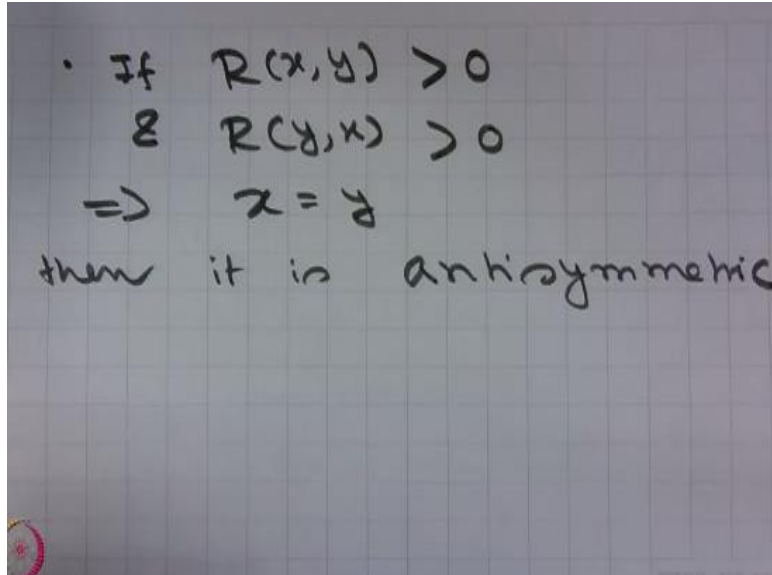 · If R(x,y) > 0
& R(y,x) > 0
=> x = y
then it is antisymmetric